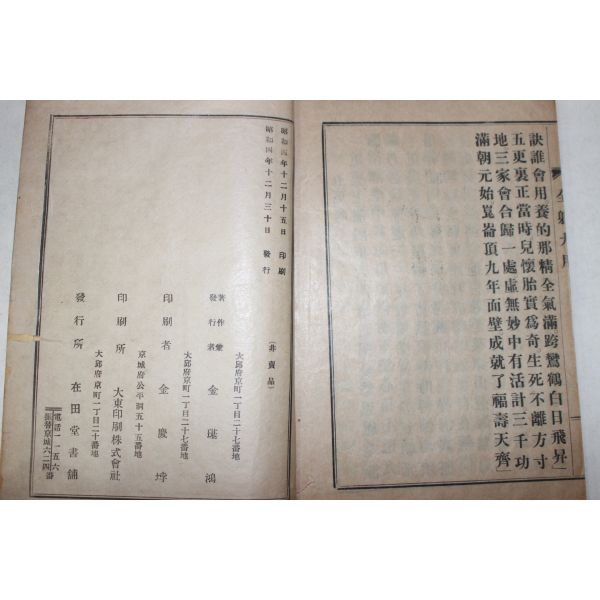 訣誰會用養的那精全氣滿跨鸞鶴白日飛昇
五更裏正當時兒懷胎實爲奇生死不離方寸
地三家會合歸一處虛無妙中有活計三千功
滿朝元始崑崙頂九年面壁成就了福壽天齊
昭和四年十二月十五日 印刷
昭和四年十二月三十日 發行
(非賣品)
大邱府京町一丁目二十七番地
著作兼
發行者 金 琪 鴻
大邱府京町一丁目二十七番地
印刷者 金 慶
京城府公平洞五十五番地
印刷所 大東印刷株式會社
大邱府京町一丁目二十番地
發行所 在田堂書舖
電話一一五六
振替京城六二四番